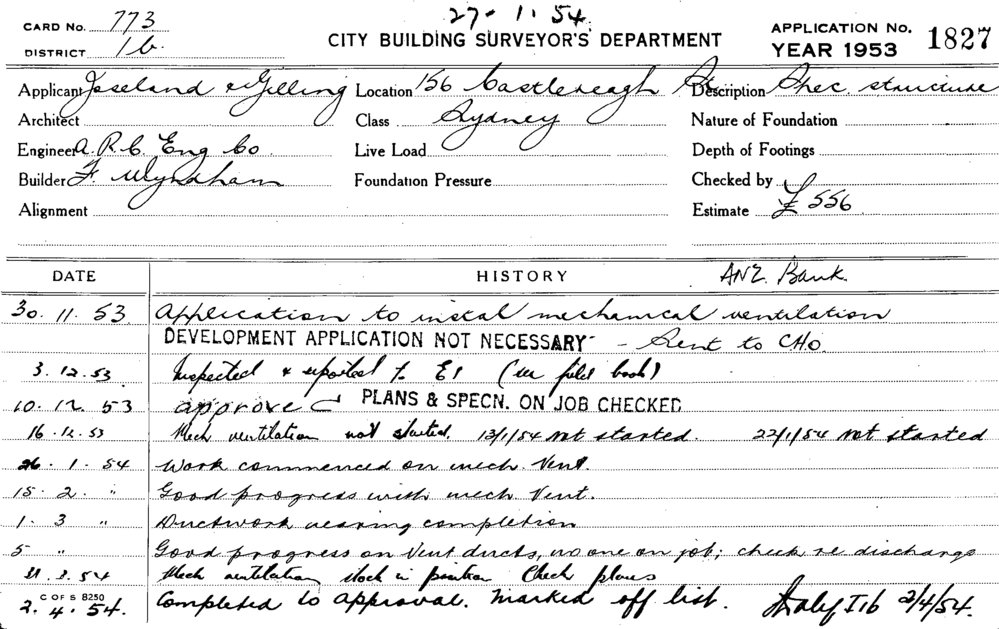 CARD No. 773
27-1.54.
DISTRICT 1b.
CITY BUILDING SURVEYOR'S DEPARTMENT
APPLICATION No. 1827
YEAR 1953
Applicant Joseland & Gilling Location 156 Castlereagh St. Description Spec. structure
Architect Class Sydney Nature of Foundation
Engineer A.R.C. Eng Co Live Load Depth of Footings
Builder F. Wyndham Foundation Pressure Checked by
Alignment Estimate £ 556
DATE HISTORY ANZ. Bank.
30.11.53 Application to instal mechanical ventilation
DEVELOPMENT APPLICATION NOT NECESSARY - Sent to CHO.
3.12.53 Inspected & reported to EI (see field book)
10.12.53 approve PLANS & SPECN. ON JOB CHECKED
16.12.53 Mech ventilation not started. 13/1/54 not started. 22/1/54 not started
26.1.54 Work commenced on mech. Vent.
15.2. " Good progress with mech. Vent.
1.3 " Ductwork nearing completion
5 " Good progress on Vent ducts, no one on job; check re discharge
31.3.54 Mech ventilation stack in position Check plans
C OF S 8250
2.4.54. Completed to approval. Marked off list. 2/4/54.